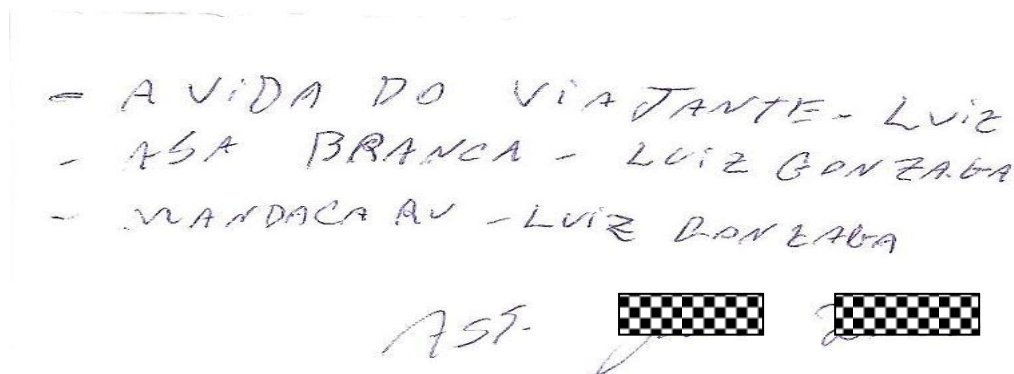 - A ViDA DO ViAJANTE - LUiZ
- ASA BRANCA - LUiZ GONZAGA
- MANDACARU - LUiZ GONZAGA
ASS.